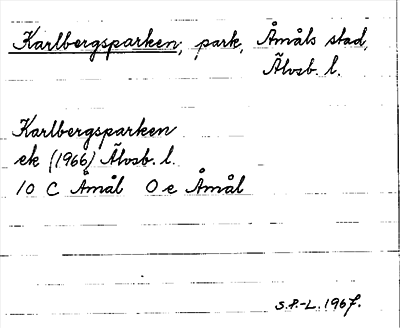 Karlbergsparken, park, Åmåls stad,
Älvsb. l.
Karlbergsparken
ek (1966) Älvsb. l.
10 C Åmål O e Åmål
S.P.-L. 1967.